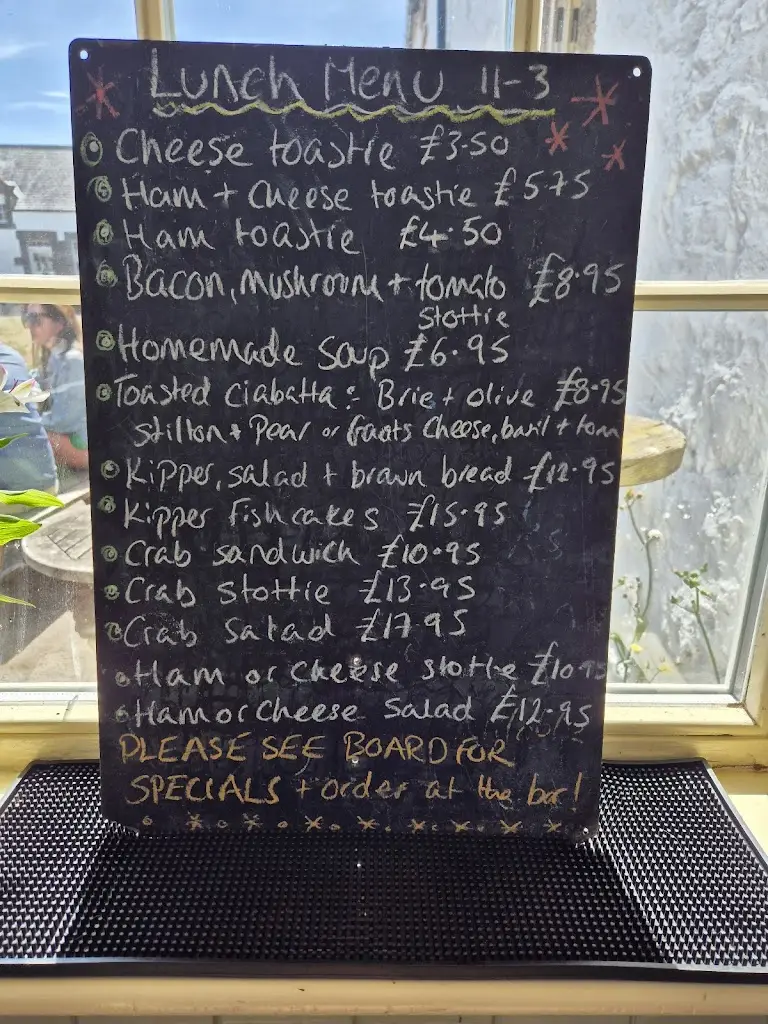 Lunch Menu 11-3
Cheese toastie £3.50
Ham + Cheese toastie £5.75
Ham toastie £4.50
Bacon, mushroom + tomato £8.95
stottie
Homemade Soup £6.95
Toasted Ciabatta :- Brie + olive £8.95
Stilton + Pear or Goats Cheese, basil + tom
Kipper, salad + brown bread £12.95
Kipper Fishcakes £15.95
Crab sandwich £10.95
Crab stottie £13.95
Crab salad £17.95
Ham or cheese stottie £10.95
Ham or Cheese Salad £12.95
PLEASE SEE BOARD FOR
SPECIALS + order at the bar!